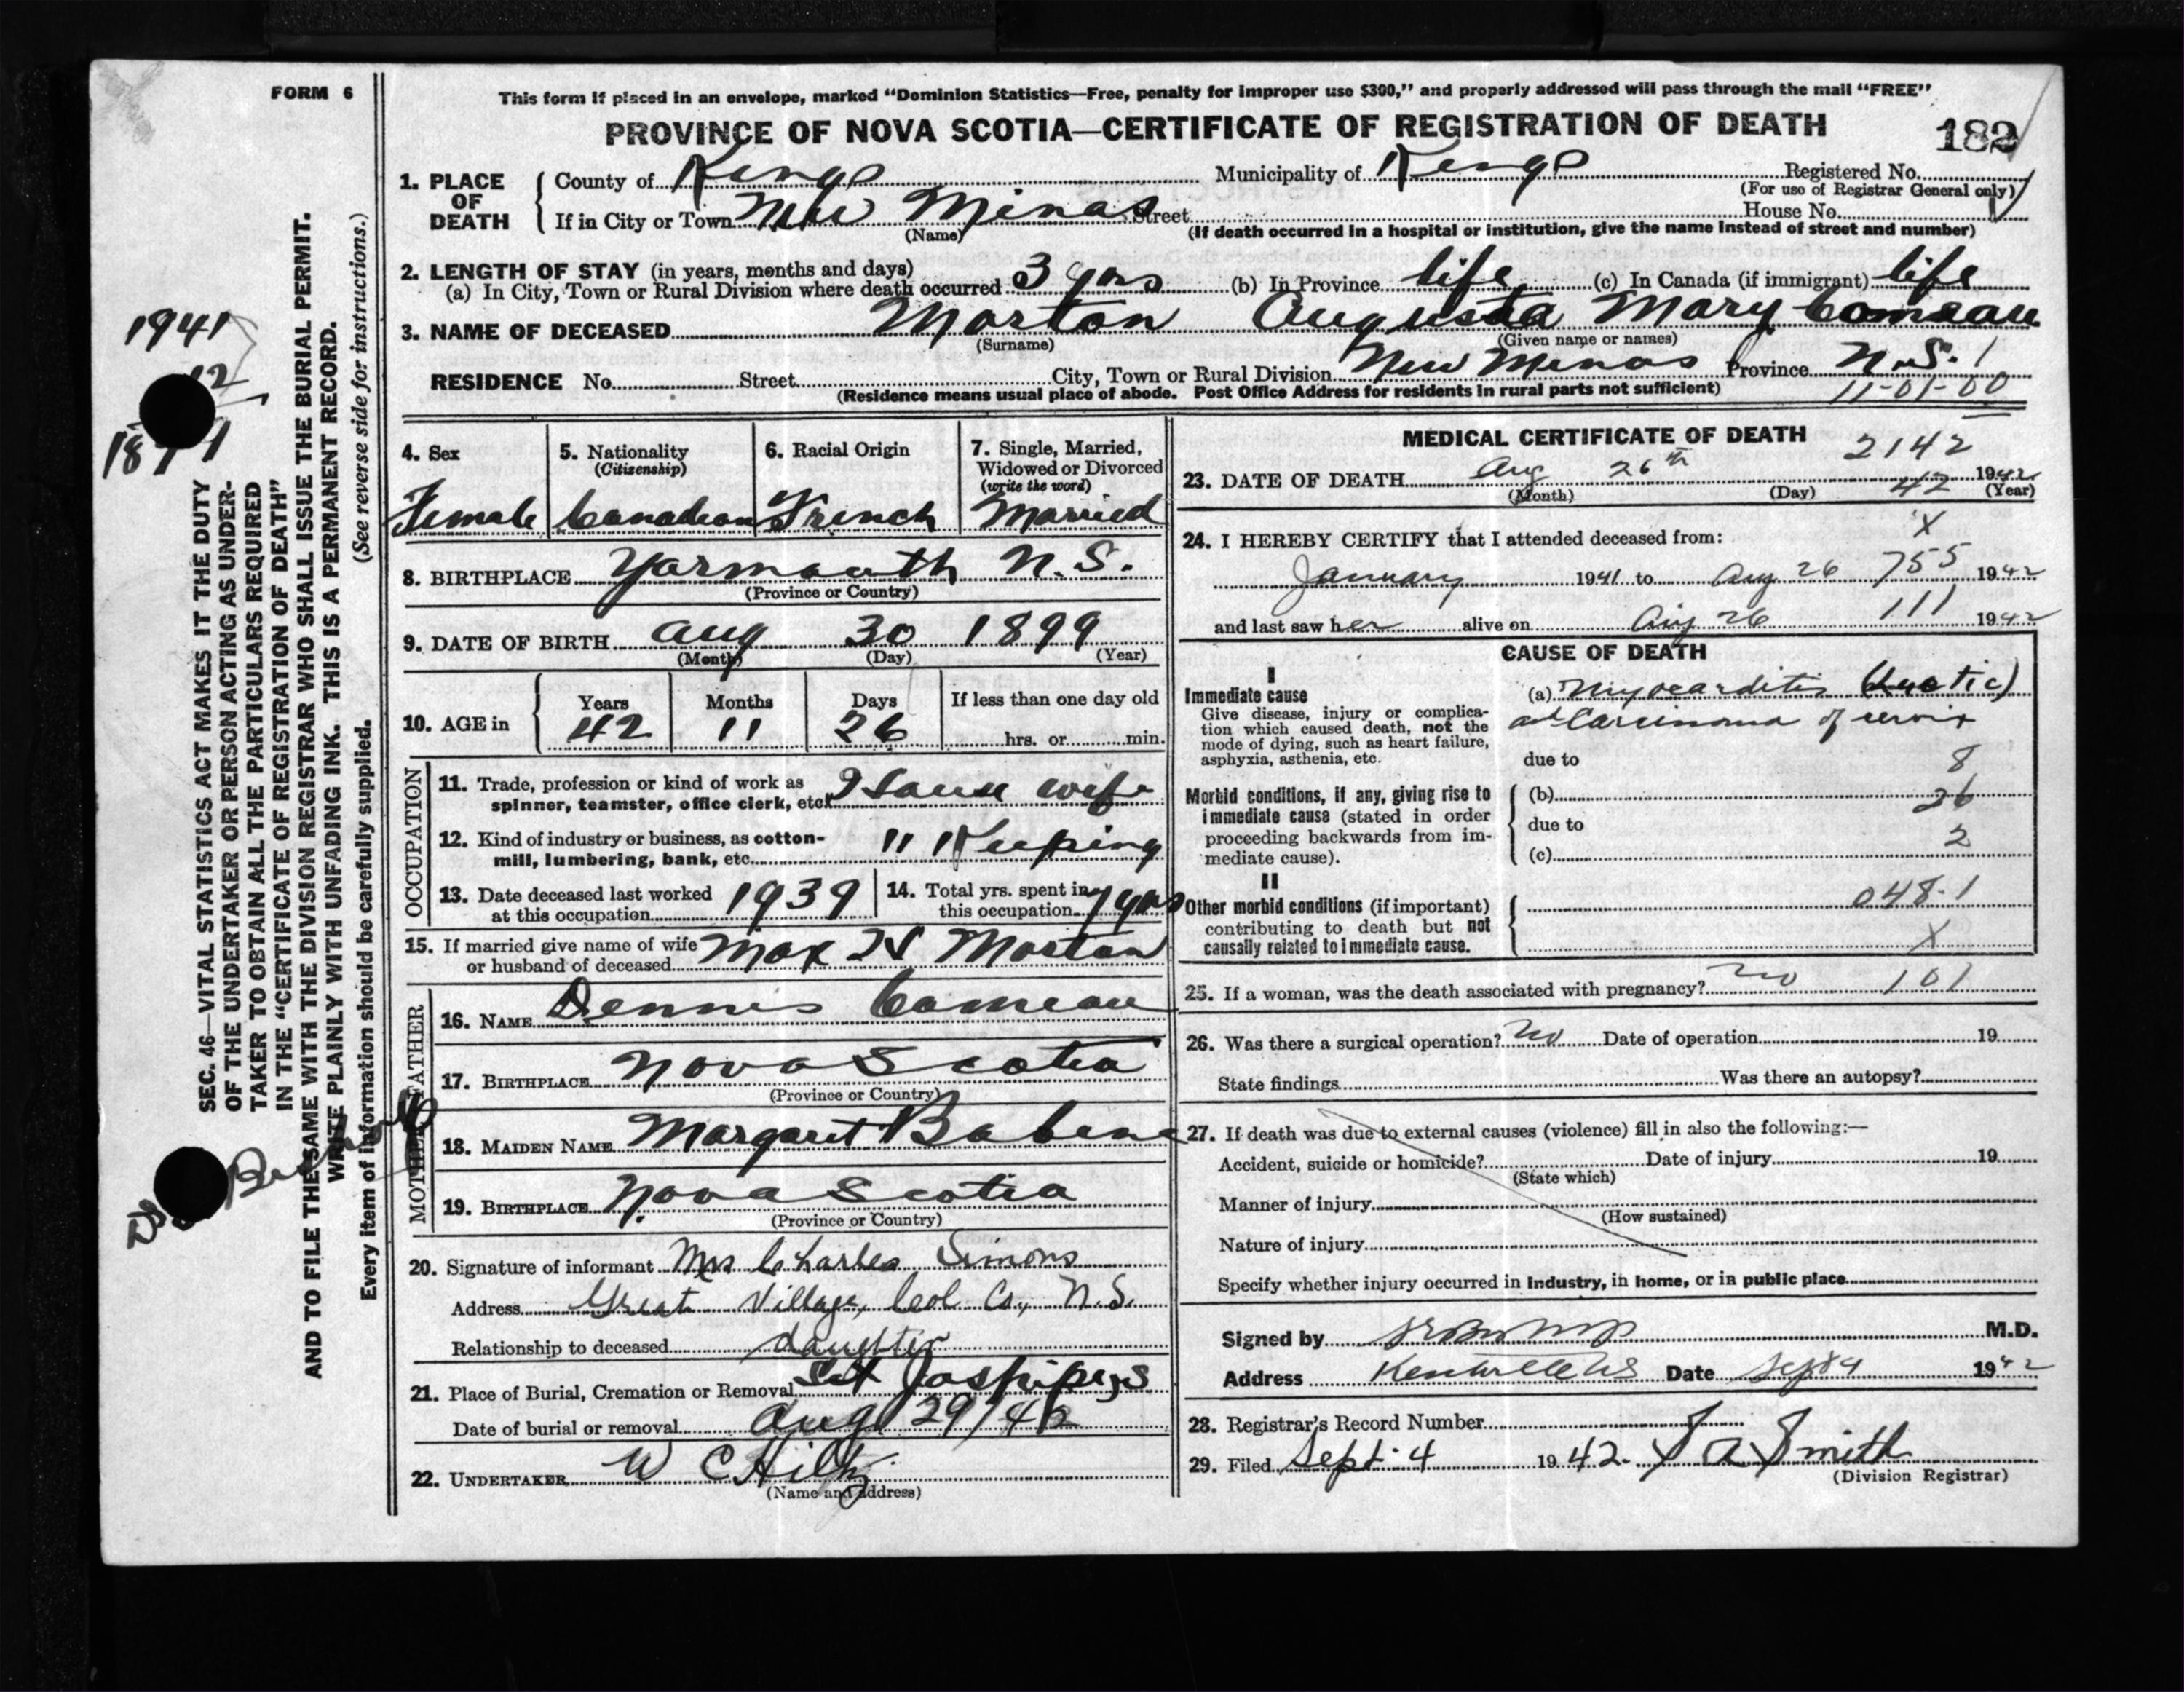 FORM 6
This form if placed in an envelope, marked "Dominion Statistics—Free, penalty for improper use $300," and properly addressed will pass through the mail "FREE"
PROVINCE OF NOVA SCOTIA—CERTIFICATE OF REGISTRATION OF DEATH
182
1. PLACE OF DEATH County of Kings Municipality of Kings Registered No.
(For use of Registrar General only)
If in City or Town New Minas Street House No.
(Name) (If death occurred in a hospital or institution, give the name instead of street and number)
2. LENGTH OF STAY (in years, months and days)
(a) In City, Town or Rural Division where death occurred 3 yrs (b) In Province life (c) In Canada (if immigrant) life
3. NAME OF DECEASED Morton Augusta Mary Comeau
(Surname) (Given name or names)
RESIDENCE No. Street City, Town or Rural Division New Minas Province N.S.
(Residence means usual place of abode. Post Office Address for residents in rural parts not sufficient) 11-01-00
4. Sex 5. Nationality (Citizenship) 6. Racial Origin 7. Single, Married, Widowed or Divorced (write the word)
Female Canadian French Married
8. BIRTHPLACE Yarmouth N.S.
(Province or Country)
9. DATE OF BIRTH Aug 30 1899
(Month) (Day) (Year)
10. AGE in Years Months Days If less than one day old
42 11 26 hrs. or min.
OCCUPATION
11. Trade, profession or kind of work as spinner, teamster, office clerk, etc. House wife
12. Kind of industry or business, as cotton-mill, lumbering, bank, etc. " Keeping
13. Date deceased last worked at this occupation 1939 14. Total yrs. spent in this occupation 7 yrs
15. If married give name of wife or husband of deceased Max H Morton
FATHER
16. NAME Dennis Comeau
17. BIRTHPLACE Nova Scotia
(Province or Country)
MOTHER
18. MAIDEN NAME Margaret Babine
19. BIRTHPLACE Nova Scotia
(Province or Country)
20. Signature of informant Mrs Charles Simons
Address Great Village, Col Co., N.S.
Relationship to deceased daughter
21. Place of Burial, Cremation or Removal
Date of burial or removal Aug 29/42
22. UNDERTAKER W C Hiltz
(Name and address)
MEDICAL CERTIFICATE OF DEATH
2142
23. DATE OF DEATH Aug 26th 42 1942
(Month) (Day) (Year)
24. I HEREBY CERTIFY that I attended deceased from: X
January 1941 to Aug 26 755 1942
and last saw her alive on Aug 26 111 1942
CAUSE OF DEATH
I
Immediate cause (a) Myocarditis (luetic)
Give disease, injury or complication which caused death, not the mode of dying, such as heart failure, asphyxia, asthenia, etc.
and Carcinoma of cervix
due to 8
Morbid conditions, if any, giving rise to immediate cause (stated in order proceeding backwards from immediate cause).
(b) 26
due to 2
(c)
II
Other morbid conditions (if important) contributing to death but not causally related to immediate cause.
048.1
X
25. If a woman, was the death associated with pregnancy? no 101
26. Was there a surgical operation? no Date of operation 19
State findings Was there an autopsy?
27. If death was due to external causes (violence) fill in also the following:—
Accident, suicide or homicide? Date of injury 19
(State which)
Manner of injury
(How sustained)
Nature of injury
Specify whether injury occurred in Industry, in home, or in public place
Signed by M.D.
Address Kentville NS Date Sept 4 1942
28. Registrar's Record Number
29. Filed Sept. 4 1942. Smith
(Division Registrar)
SEC. 46—VITAL STATISTICS ACT MAKES IT THE DUTY
OF THE UNDERTAKER OR PERSON ACTING AS UNDER-
TAKER TO OBTAIN ALL THE PARTICULARS REQUIRED
IN THE "CERTIFICATE OF REGISTRATION OF DEATH"
AND TO FILE THE SAME WITH THE DIVISION REGISTRAR WHO SHALL ISSUE THE BURIAL PERMIT.
WRITE PLAINLY WITH UNFADING INK. THIS IS A PERMANENT RECORD.
Every item of information should be carefully supplied. (See reverse side for instructions.)
1941
12